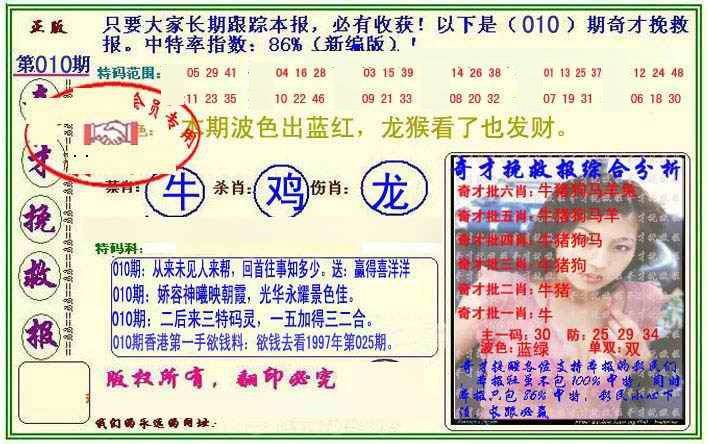 正版
只要大家长期跟踪本报，必有收获！以下是（010）期奇才挽救
报。中特率指数：86%（新编版）！
第010期
特码范围：
05 29 41
04 16 28
03 15 39
14 26 38
01 13 25 37
12 24 48
11 23 35
10 22 46
09 21 33
08 20 32
07 19 31
06 18 30
会员专用
本期波色出蓝红，龙猴看了也发财。
才
挽
救
报
牛 杀肖：鸡 伤肖：龙
特码科：
010期：从来未见人来帮，回首往事知多少。送：赢得喜洋洋
010期：娇容神曦映朝霞，光华永耀景色佳。
010期：二后来三特码灵，一五加得三二合。
010期香港第一手欲钱料：欲钱去看1997年第025期。
版权所有，翻印必究
我们的永远的网址：
奇才挽救报综合分析
奇才批六肖：牛猪狗马羊兔
奇才批五肖：牛猪狗马羊
奇才批四肖：牛猪狗马
奇才批三肖：牛猪狗
奇才批二肖：牛猪
奇才批一肖：牛
主一码：30 防：25 29 34
波色：蓝绿 单双：双
奇才提醒各位支持本报的彩民们
本报社虽不包100%中特，但对
本报只包86%中特，彩民小心下
注，长跟必赢